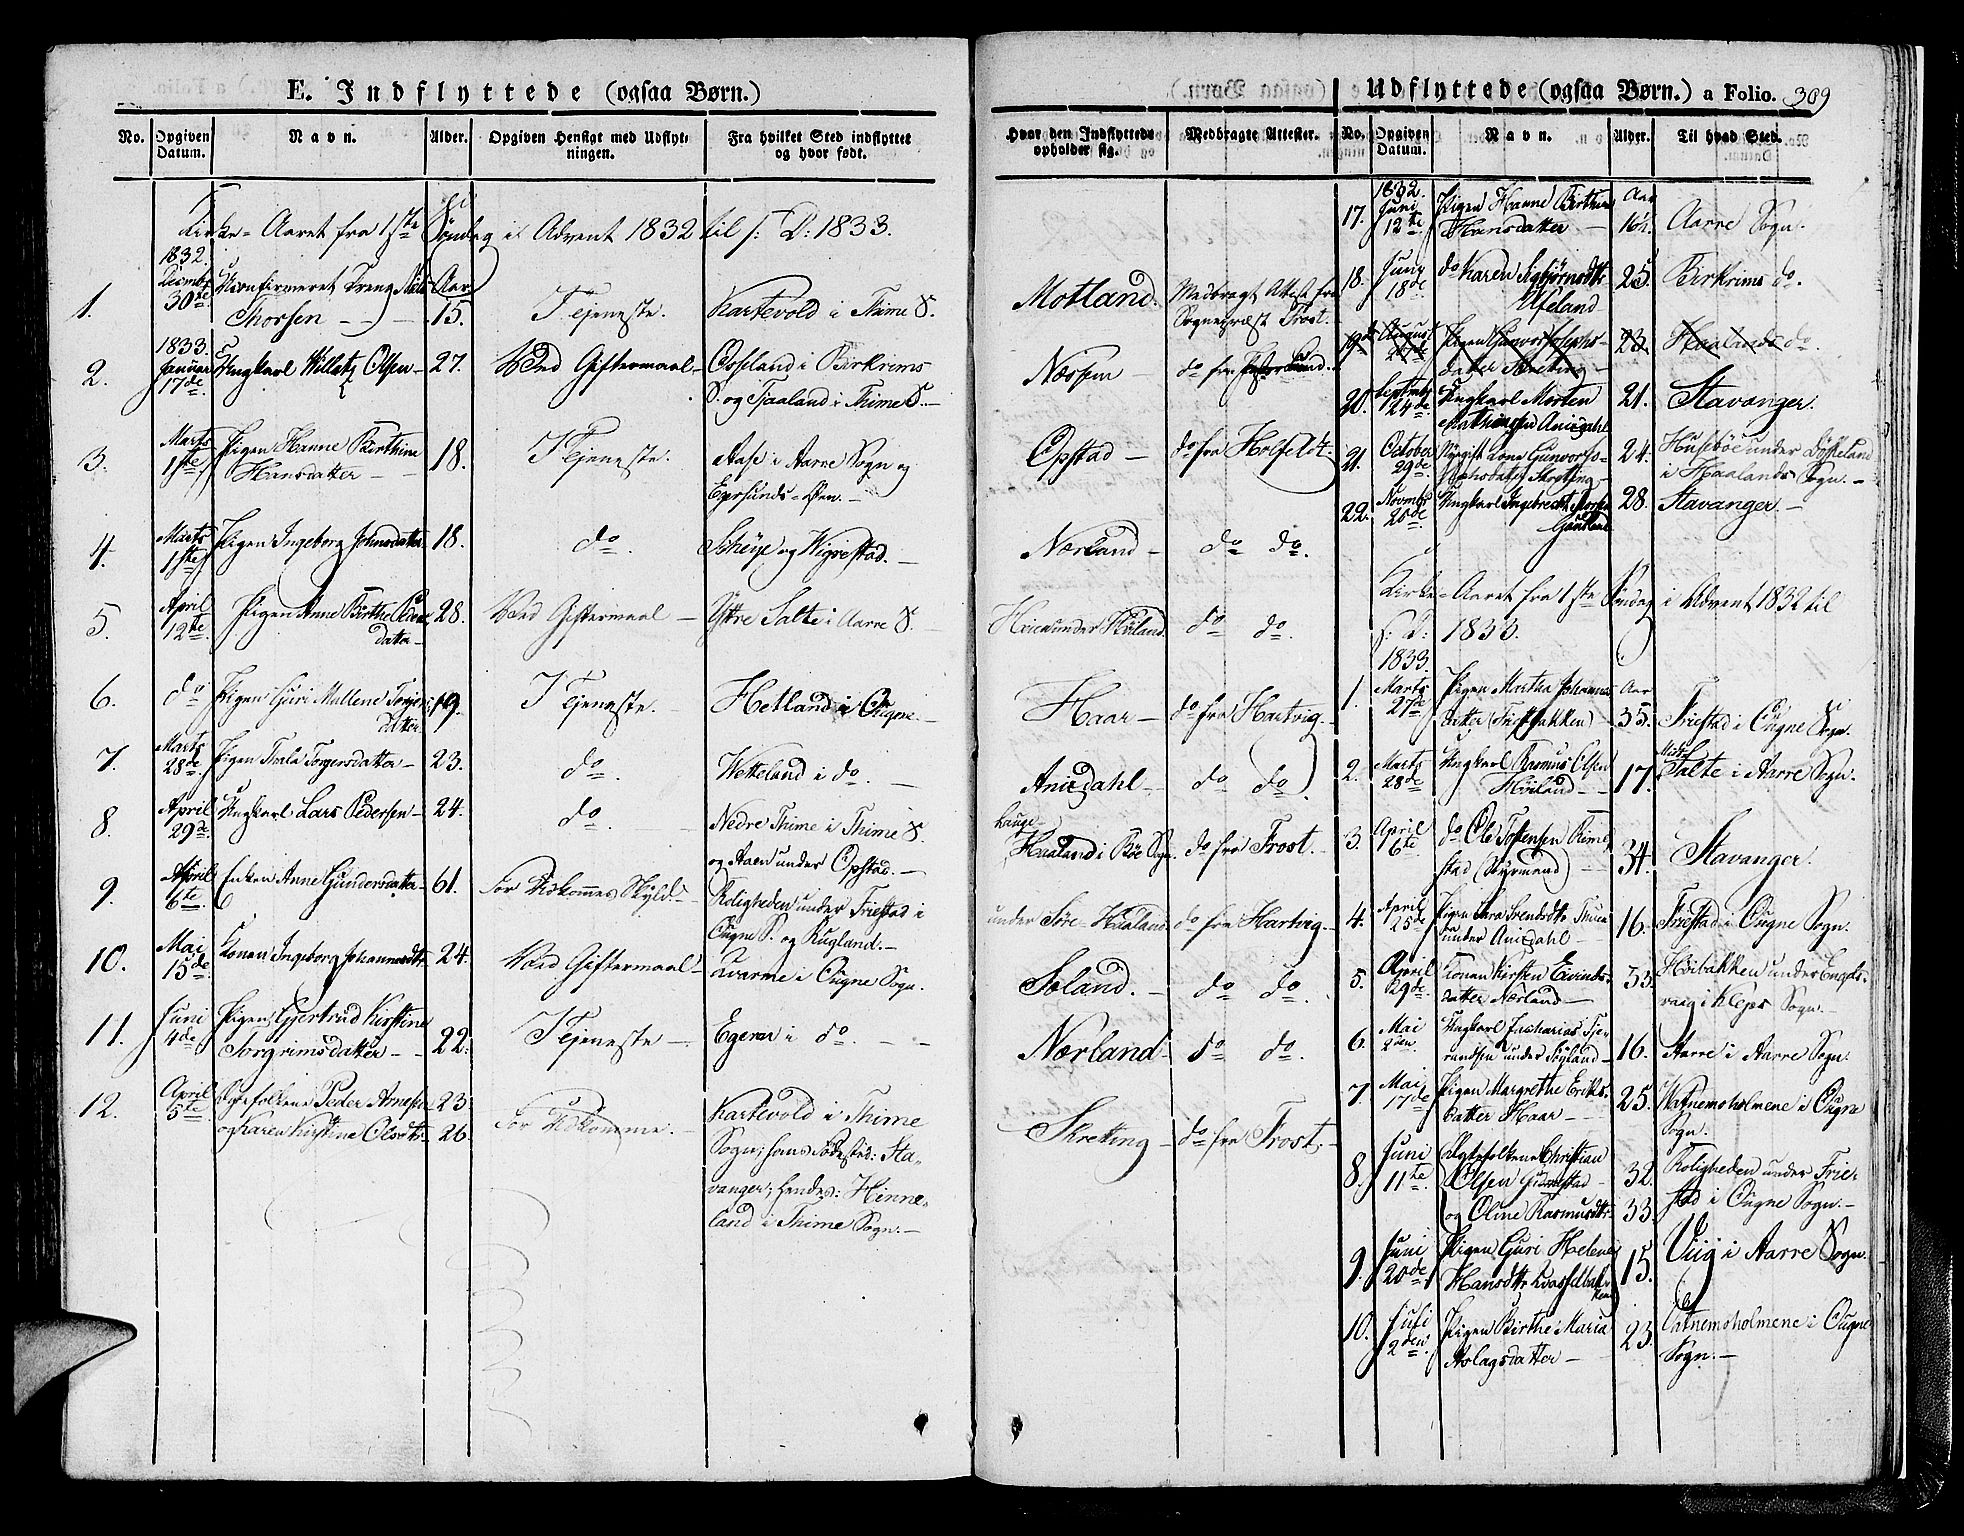 E. Indflyttede (ogsaa Børn.)
No. Opgiven Datum. Navn. Alder. Opgiven Hensigt med Udflytningen. Fra hvilket Sted indflyttet og hvor født.
Kirke-Aaret fra 1ste Søndag i Advent 1832 til s: D: 1833.
1832. Aar
1. Decembr 30te Ukonfirmeret Thorsen 15. I Tjeneste. Kartevold i Thime S.
1833.
2. Januar 17de Ungkarl Willatz Olsen 27. Ved Giftermaal Osland i Birkrims
S. og Tjaaland i Thime S.
3. Marts 1ste Pigen Hanne Birthine Hansdatter 18. I Tjeneste. Aase i Aarre Sogn og
Egersunds-Øen.
4. Marts 1ste Pigen Ingeborg Johnsdatter 18. do. og Wigrestad.
5. April 12te Pigen Anne Birthe datter 28. Ved Giftermaal Ystre Salte i Aarre S.
6. do Pigen Guri Mallene Torgersdatter 19. I Tjeneste. Hetland i Ougne.
7. Marts 28de Pigen Thala Torgersdatter 23. do. Wetteland i do.
8. April 29de Ungkarl Lars Pedersen 24. do. Nedre Thime i Thime S.
og Aaen under Opstad.
9. April 6te Enken Anne Gundersdatter 61. For Udkommes Skyld. Roligheden under Friestad i
Ougne S. og Kugland.
10. Mai 15de Konen Ingeborg Johannesdtr 24. Ved Giftermaal Kvarme i Ougne Sogn.
11. Juni 4de Pigen Gjertrud Kirstine Torgrimsdatter 22. I Tjeneste Egeren i do.
12. April 5te Ægtefolkene Peder Arnesen 23. For Udkomme. Kartevold i Thime
og Karen Kirstine Olsdtr 26. Sogn; hans Fødested: Sta-
vanger; hendes: Hinne-
land i Thime Sogn.
Hvor den Indflyttede opholder sig. Medbragte Attester.
Motland. Medbragt Attest fra Sognepræst Frost.
Næssem do fra
Opstad do fra Holfeldt.
Nærland do do.
under Høiland. do do.
Haar do fra Hartvig.
Anisdahl do do.
Hauge-
Haaland i Bøe Sogn. do fra Frost.
under Søre-Haaland. do fra Hartvig.
Søland. do do.
Nærland do do.
Skreting do fra Frost.
Udflyttede (ogsaa Børn.) a Folio. 309
No. Opgiven Datum. Navn. Alder. Til hvad Sted.
1832. Aar
17. Juni 12te Pigen Hanne Birthine Hansdatter 16½. Aarre Sogn.
18. Juni 18de do Karen Sigbjørnsdtr Ufeland 25. Birkrims do.
19de August 27de Pigen Gunvor Josephsdatter Skreting 23. Haalands do.
20. Septembr 24de Ungkarl Morten Mathiassen Anisdahl 21. Stavanger.
21. October 29de Nygift Kone Gunvor Josephsdatter Skreting 24. Huseböe under
i Haalands Sogn.
22. Novembr 20de Ungkarl Ingebret 28. Stavanger.
Kirke-Aaret fra 1ste Søndag i Advent 1832 til
s: D: 1833.
1833. Aar
1. Marts 27de Pigen Martha Johannesdatter 35. Friestad i Ougne Sogn.
2. Marts 28de Ungkarl Rasmus Olsen Høiland 17. Salte i Aarre Sogn.
3. April 6te do Ole Tostensen Rimestad (Styrmand) 34. Stavanger.
4. April 25de Pigen Sara Svendsdtr under Anisdahl 16. Friestad i Ougne Sogn.
5. April 29de Konen Kirsten Eivindsdatter Nærland 33. Høibakken under Engels-
vaag i Kleps Sogn.
6. Mai 2den Ungkarl Zacharias under Høyland 16. Aarre i Aarre Sogn.
7. Mai 17de Pigen Margrethe Eriksdatter Haar 25. Watnemoholmene i Ougne
Sogn.
8. Juni 11te Ægtefolkene Christian Olsen 32. Roligheden under Frie-
og Oline Rasmusdtr 33. stad i Ougne Sogn.
9. Juni 20de Pigen Guri Helene Hansdtr 15. Viig i Aarre Sogn.
10. Juli 2den Pigen Birthe Maria Aslagsdatter 23. Vatnemoholmene i Ougne
Sogn.